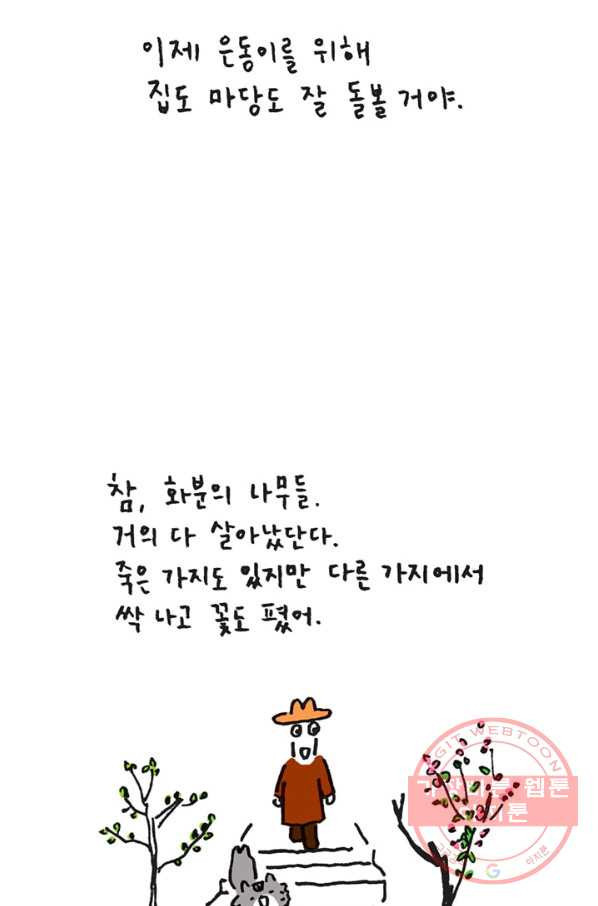 이제 은동이를 위해
집도 마당도 잘 돌볼 거야.
참, 화분의 나무들.
거의 다 살아났단다.
죽은 가지도 있지만 다른 가지에서
싹 나고 꽃도 폈어.
AGIT WEBTOON
웹툰
아지툰